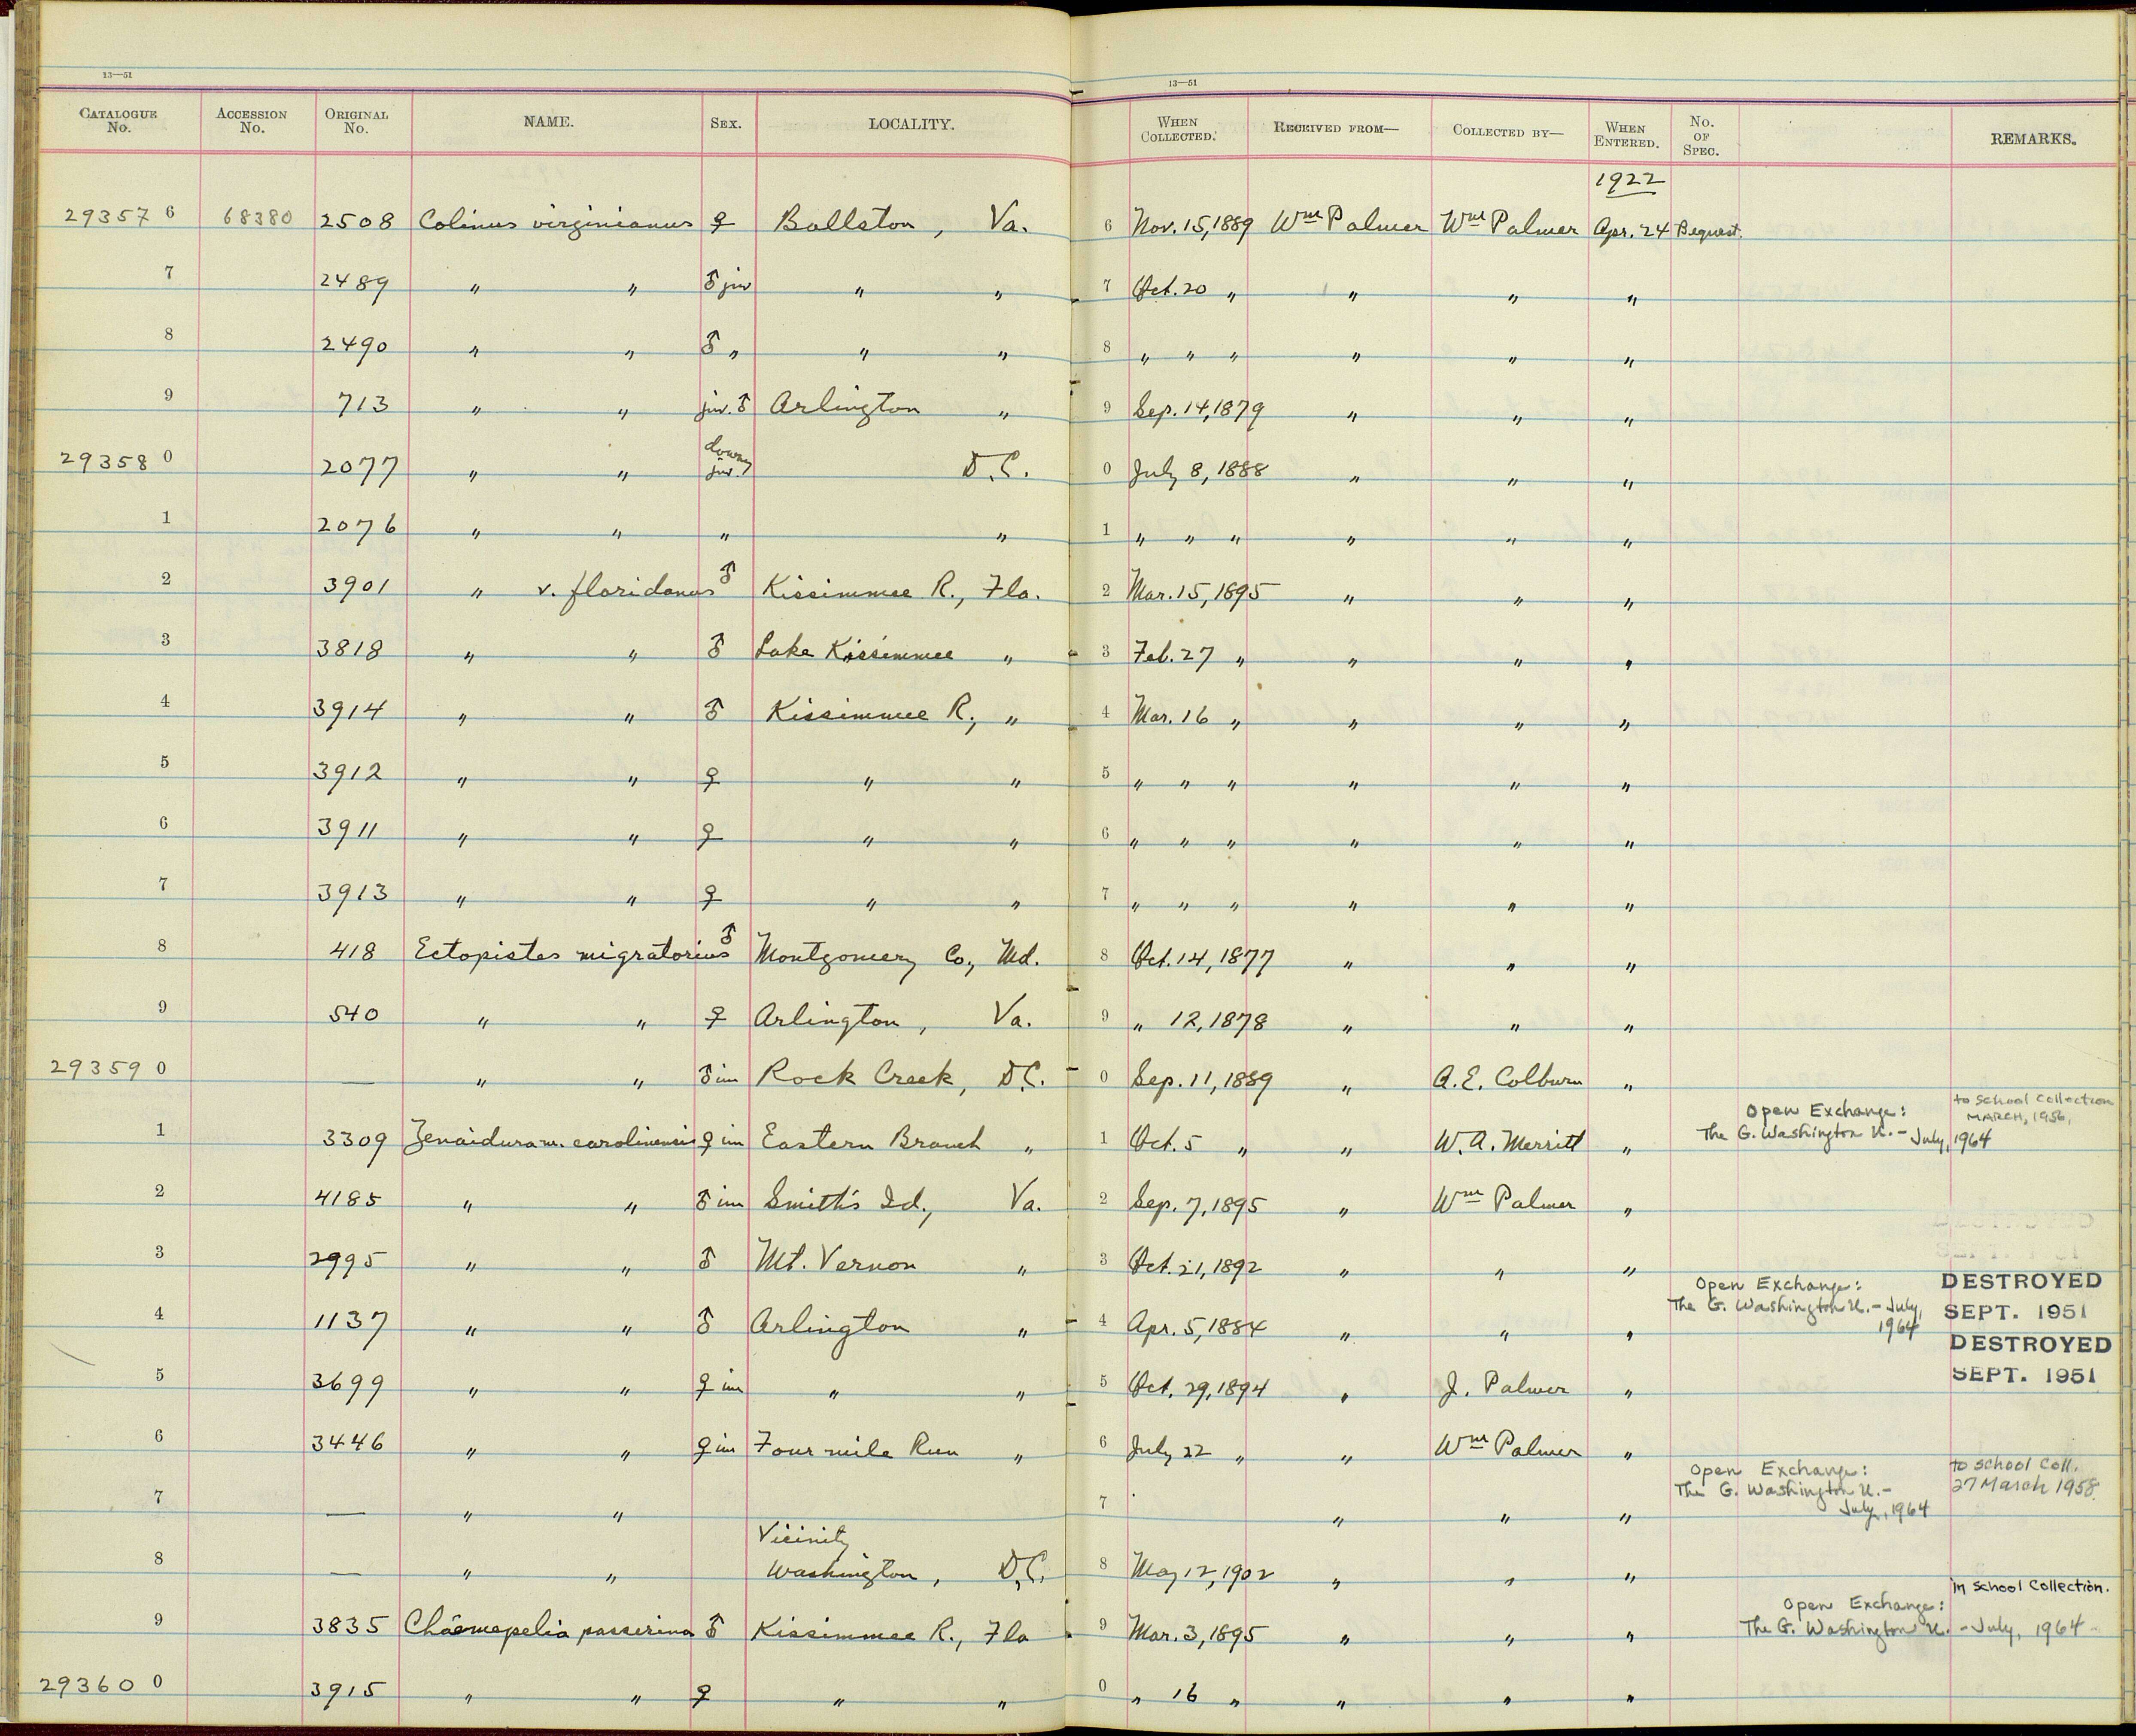 13—51
13—51
CATALOGUE No. ACCESSION No. ORIGINAL No. NAME. SEX. LOCALITY. WHEN COLLECTED. RECEIVED FROM— COLLECTED BY— WHEN ENTERED. No. OF SPEC. REMARKS.
1922
29357 6 68380 2508 Colinus virginianus ♀ Ballston, Va. 6 Nov. 15, 1889 Wm Palmer Wm Palmer Apr. 24 Bequest.
7 2489 " " ♂ juv " " 7 Oct. 20 " " " "
8 2490 " " ♂ " " " 8 " " " " " "
9 713 " " juv. ♂ Arlington " 9 Sep. 14, 1879 " " "
29358 0 2077 " " downy juv. D.C. 0 July 8, 1888 " " "
1 2076 " " " " 1 " " " " " "
2 3901 " v. floridanus ♂ Kissimmee R., Fla. 2 Mar. 15, 1895 " " "
3 3818 " " ♂ Lake Kissimmee " 3 Feb. 27 " " " "
4 3914 " " ♂ Kissimmee R., " 4 Mar. 16 " " " "
5 3912 " " ♀ " " 5 " " " " " "
6 3911 " " ♀ " " 6 " " " " " "
7 3913 " " ♀ " " 7 " " " " " "
8 418 Ectopistes migratorius ♂ Montgomery Co., Md. 8 Oct. 14, 1877 " " "
9 540 " " ♀ Arlington, Va. 9 " 12, 1878 " " "
29359 0 — " " ♂ im Rock Creek, D.C. 0 Sep. 11, 1889 " A. E. Colburn "
to School Collection
MARCH, 1956.
Open Exchange:
The G. Washington U. - July, 1964
1 3309 Zenaidura m. carolinensis ♀ im Eastern Branch " 1 Oct. 5 " " W. A. Merritt "
2 4185 " " ♂ im Smith's Id., Va. 2 Sep. 7, 1895 " Wm Palmer "
3 2995 " " ♂ Mt. Vernon " 3 Oct. 21, 1892 " " "
Open Exchange:
The G. Washington U. - July,
1964
DESTROYED
SEPT. 1951
4 1137 " " ♂ Arlington " 4 Apr. 5, 1884 " " "
DESTROYED
SEPT. 1951
5 3699 " " ♀ im " " 5 Oct. 29, 1894 " J. Palmer "
6 3446 " " ♀ im Four mile Run " 6 July 22 " " Wm Palmer "
Open Exchange:
The G. Washington U. -
July, 1964
to School Coll.
27 March 1958.
7 — " " 7 " " "
8 — " " Vicinity Washington, D.C. 8 May 12, 1902 " " "
in School Collection.
Open Exchange:
The G. Washington U. - July, 1964
9 3835 Chaemepelia passerina ♂ Kissimmee R., Fla 9 Mar. 3, 1895 " " "
29360 0 3915 " " ♀ " " 0 " 16 " " " "